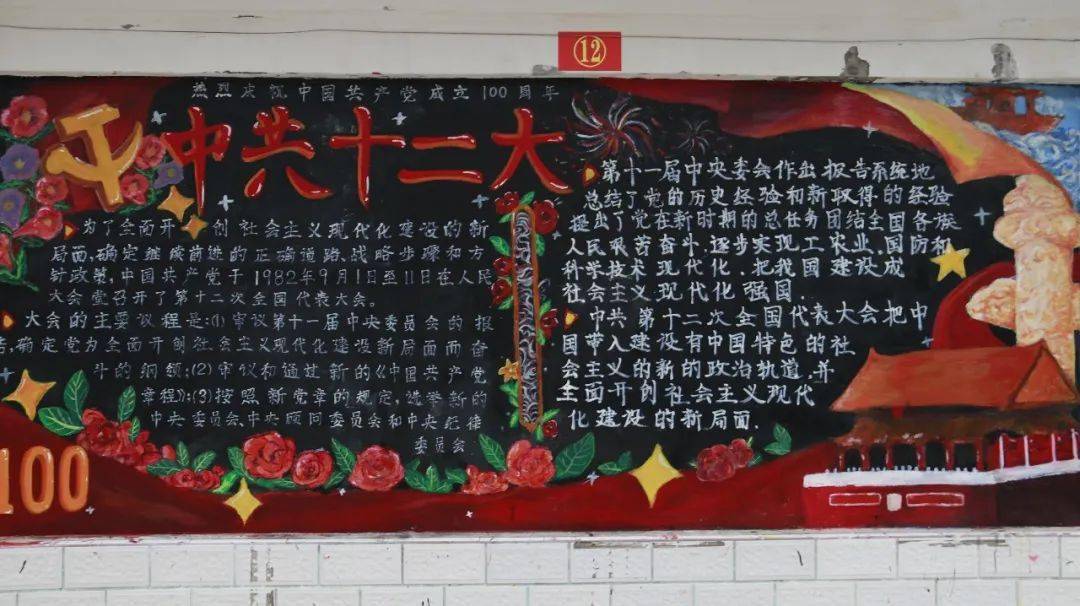 12
热烈庆祝中国共产党成立100周年
中共十二大
为了全面开创社会主义现代化建设的新
局面,确定继续前进的正确道路、战略步骤和方
针政策,中国共产党于1982年9月1日至11日在人民
大会堂召开了第十二次全国代表大会。
大会的主要议程是:(1)审议第十一届中央委员会的报
告,确定党为全面开创社会主义现代化建设新局面而奋
斗的纲领;(2)审议和通过新的《中国共产党
章程》;(3)按照新党章的规定,选举新的
中央委员会、中央顾问委员会和中央纪律
委员会.
第十一届中央委会作出报告系统地
总结了党的历史经验和新取得的经验
提出了党在新时期的总任务团结全国各族
人民艰苦奋斗,逐步实现工农业.国防和
科学技术现代化.把我国建设成
社会主义现代化强国.
中共第十二次全国代表大会把中
国带入建设有中国特色的社
会主义的新的政治轨道,并
全面开创社会主义现代
化建设的新局面.
100